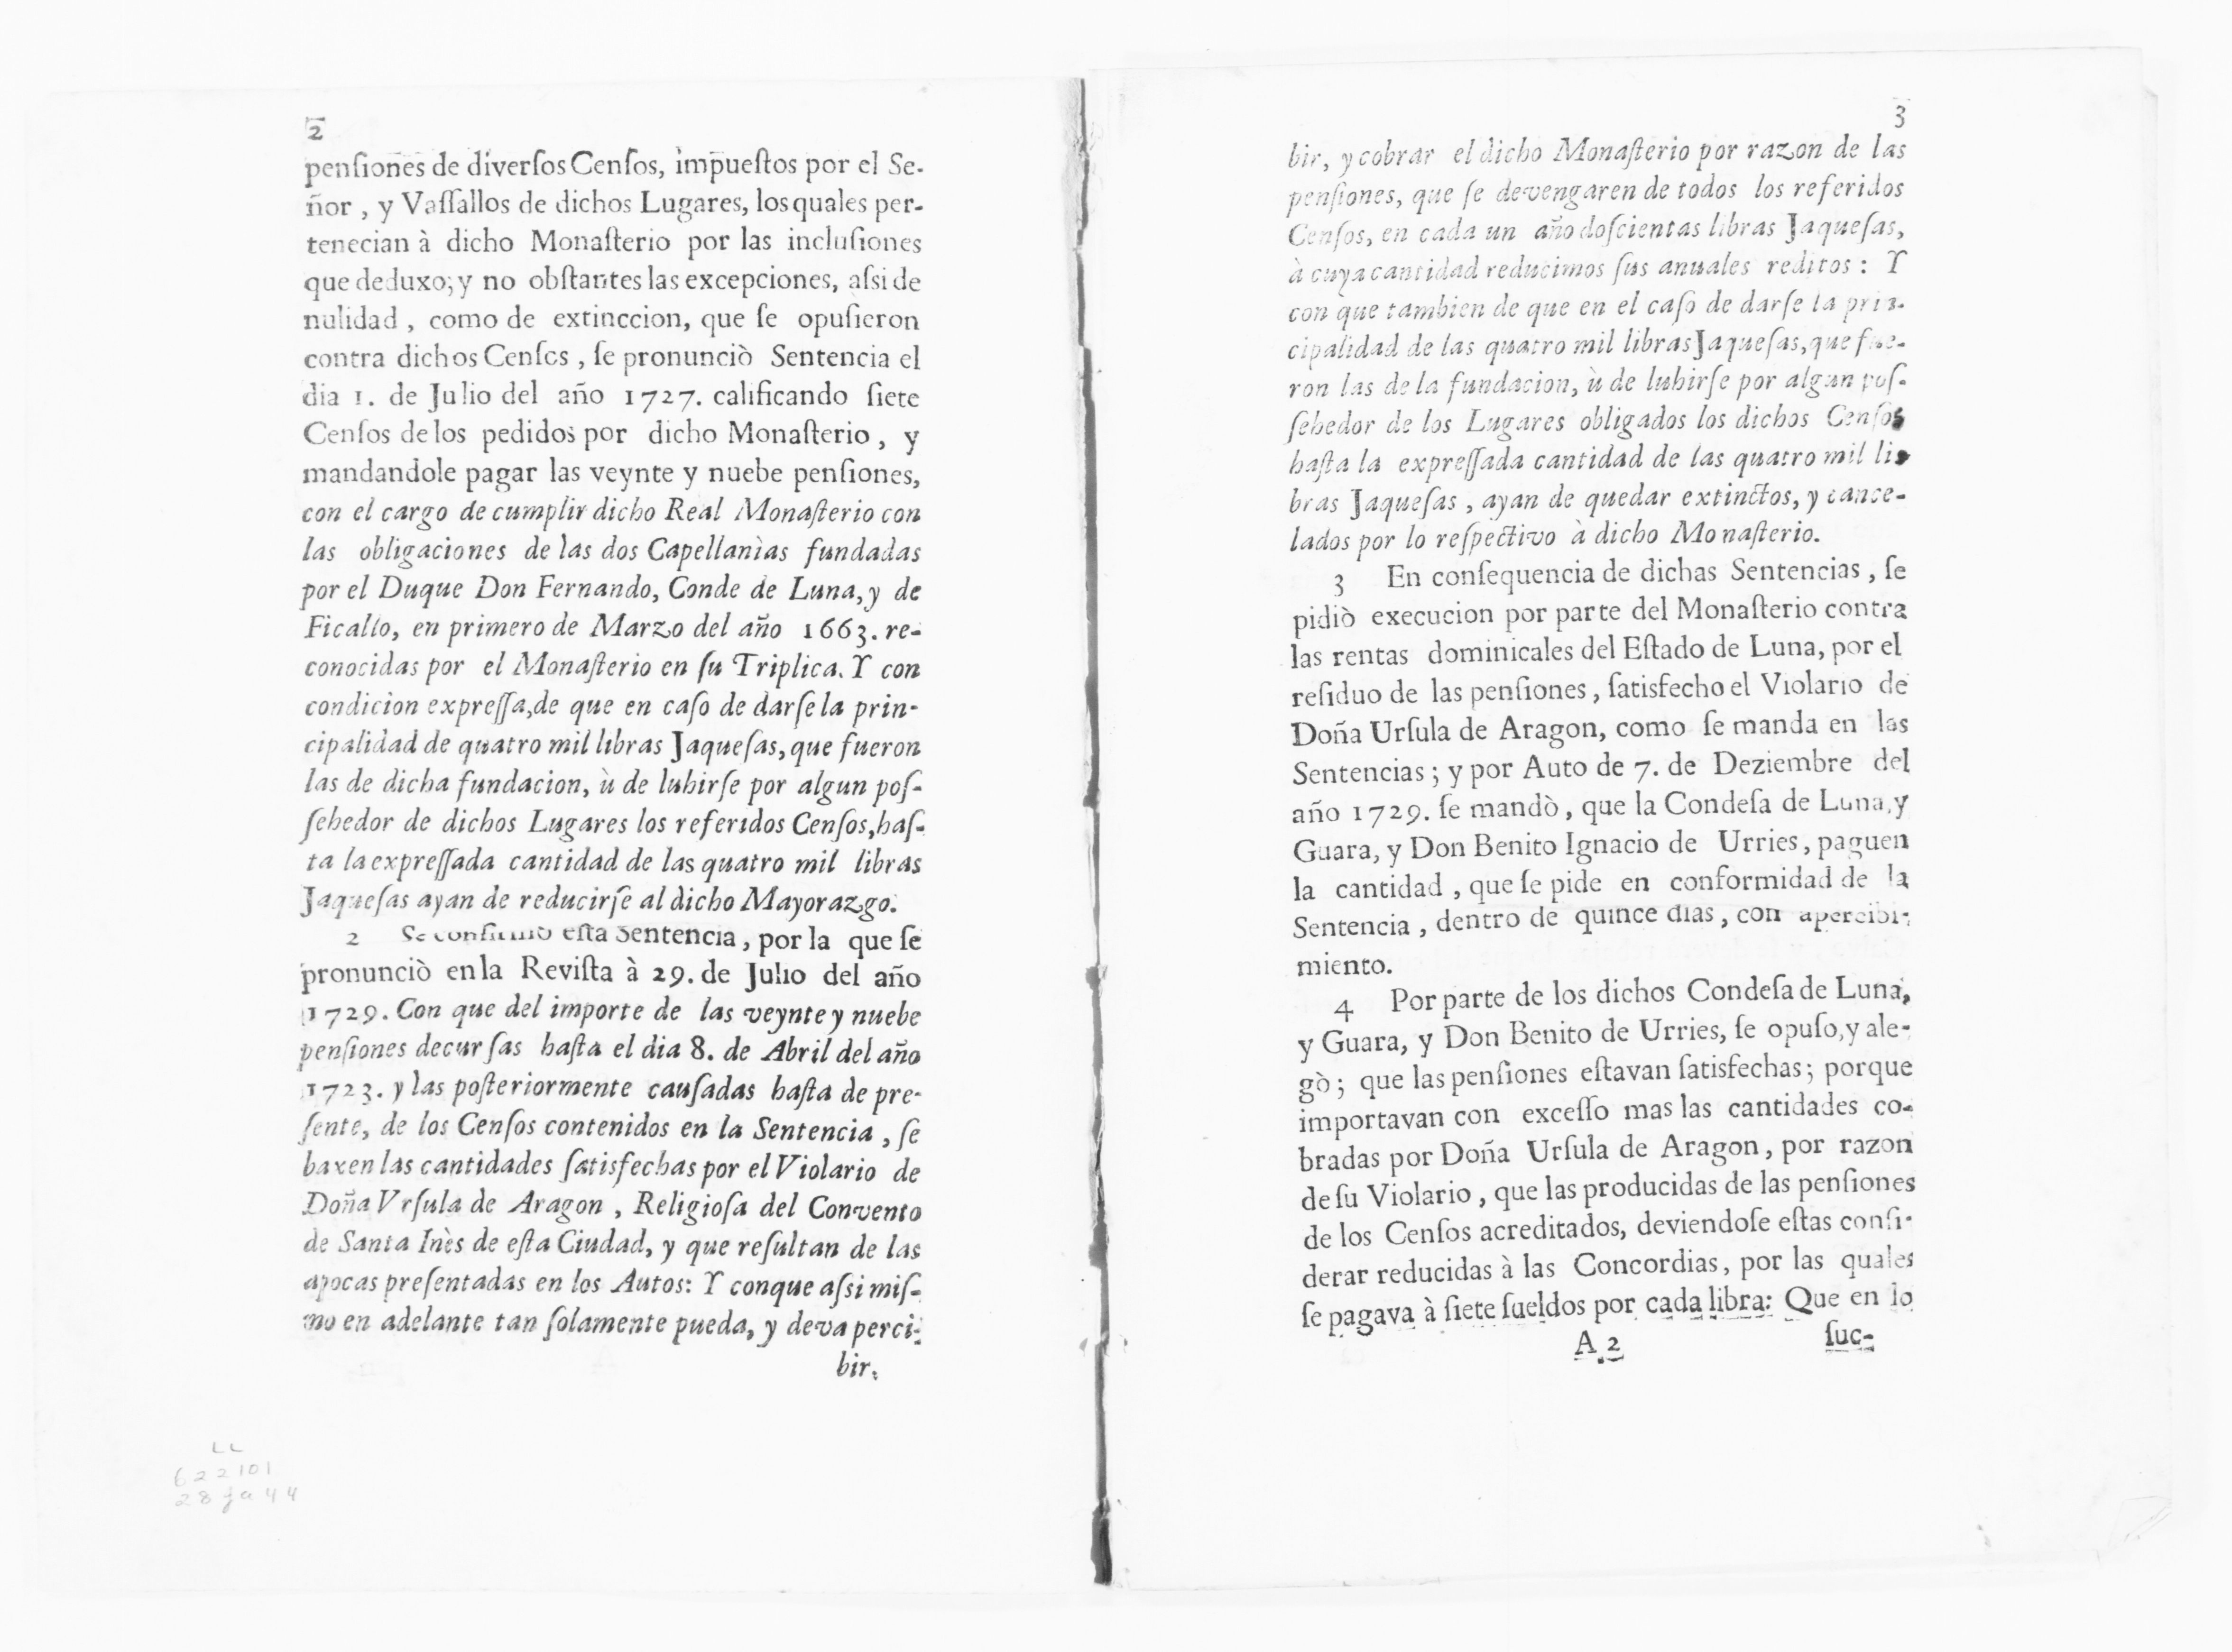 2
penſiones de diverſos Cenſos, impueſtos por el Se-
ñor, y Vaſſallos de dichos Lugares, los quales per-
tenecian à dicho Monaſterio por las incluſiones
que deduxo; y no obſtantes las excepciones, aſsi de
nulidad, como de extinccion, que ſe opuſieron
contra dichos Cenſos, ſe pronunciò Sentencia el
dia 1. de Julio del año 1727. calificando ſiete
Cenſos de los pedidos por dicho Monaſterio, y
mandandole pagar las veynte y nuebe penſiones,
con el cargo de cumplir dicho Real Monaſterio con
las obligaciones de las dos Capellanìas fundadas
por el Duque Don Fernando, Conde de Luna, y de
Ficallo, en primero de Marzo del año 1663. re-
conocidas por el Monaſterio en ſu Triplica. Y con
condicion expreſſa, de que en caſo de darſe la prin-
cipalidad de quatro mil libras Jaqueſas, que fueron
las de dicha fundacion, ù de luhirſe por algun poſ-
ſehedor de dichos Lugares los referidos Cenſos, haſ-
ta la expreſſada cantidad de las quatro mil libras
Jaqueſas ayan de reducirſe al dicho Mayorazgo.
2 Se confirmò eſta Sentencia, por la que ſe
pronunciò en la Reviſta à 29. de Julio del año
1729. Con que del importe de las veynte y nuebe
penſiones decurſas haſta el dia 8. de Abril del año
1723. y las poſteriormente cauſadas haſta de pre-
ſente, de los Cenſos contenidos en la Sentencia, ſe
baxen las cantidades ſatisfechas por el Violario de
Doña Vrſula de Aragon, Religioſa del Convento
de Santa Inès de eſta Ciudad, y que reſultan de las
apocas preſentadas en los Autos: Y conque aſsi miſ-
mo en adelante tan ſolamente pueda, y deva perci-
bir,
LL
622101
28 ja 44
3
bir, y cobrar el dicho Monaſterio por razon de las
penſiones, que ſe devengaren de todos los referidos
Cenſos, en cada un año doſcientas libras Jaqueſas,
à cuya cantidad reducimos ſus anuales reditos: Y
con que tambien de que en el caſo de darſe la prin-
cipalidad de las quatro mil libras Jaqueſas, que fue-
ron las de la fundacion, ù de luhirſe por algun poſ-
ſehedor de los Lugares obligados los dichos Cenſos
haſta la expreſſada cantidad de las quatro mil li-
bras Jaqueſas, ayan de quedar extinctos, y cance-
lados por lo reſpectivo à dicho Monaſterio.
3 En conſequencia de dichas Sentencias, ſe
pidiò execucion por parte del Monaſterio contra
las rentas dominicales del Eſtado de Luna, por el
reſiduo de las penſiones, ſatisfecho el Violario de
Doña Urſula de Aragon, como ſe manda en las
Sentencias; y por Auto de 7. de Deziembre del
año 1729. ſe mandò, que la Condeſa de Luna, y
Guara, y Don Benito Ignacio de Urries, paguen
la cantidad, que ſe pide en conformidad de la
Sentencia, dentro de quince dias, con apercibi-
miento.
4 Por parte de los dichos Condeſa de Luna,
y Guara, y Don Benito de Urries, ſe opuſo, y ale-
gò; que las penſiones eſtavan ſatisfechas; porque
importavan con exceſſo mas las cantidades co-
bradas por Doña Urſula de Aragon, por razon
de ſu Violario, que las producidas de las penſiones
de los Cenſos acreditados, deviendoſe eſtas conſi-
derar reducidas à las Concordias, por las quales
ſe pagava à ſiete ſueldos por cada libra: Que en lo
A 2 ſuc-